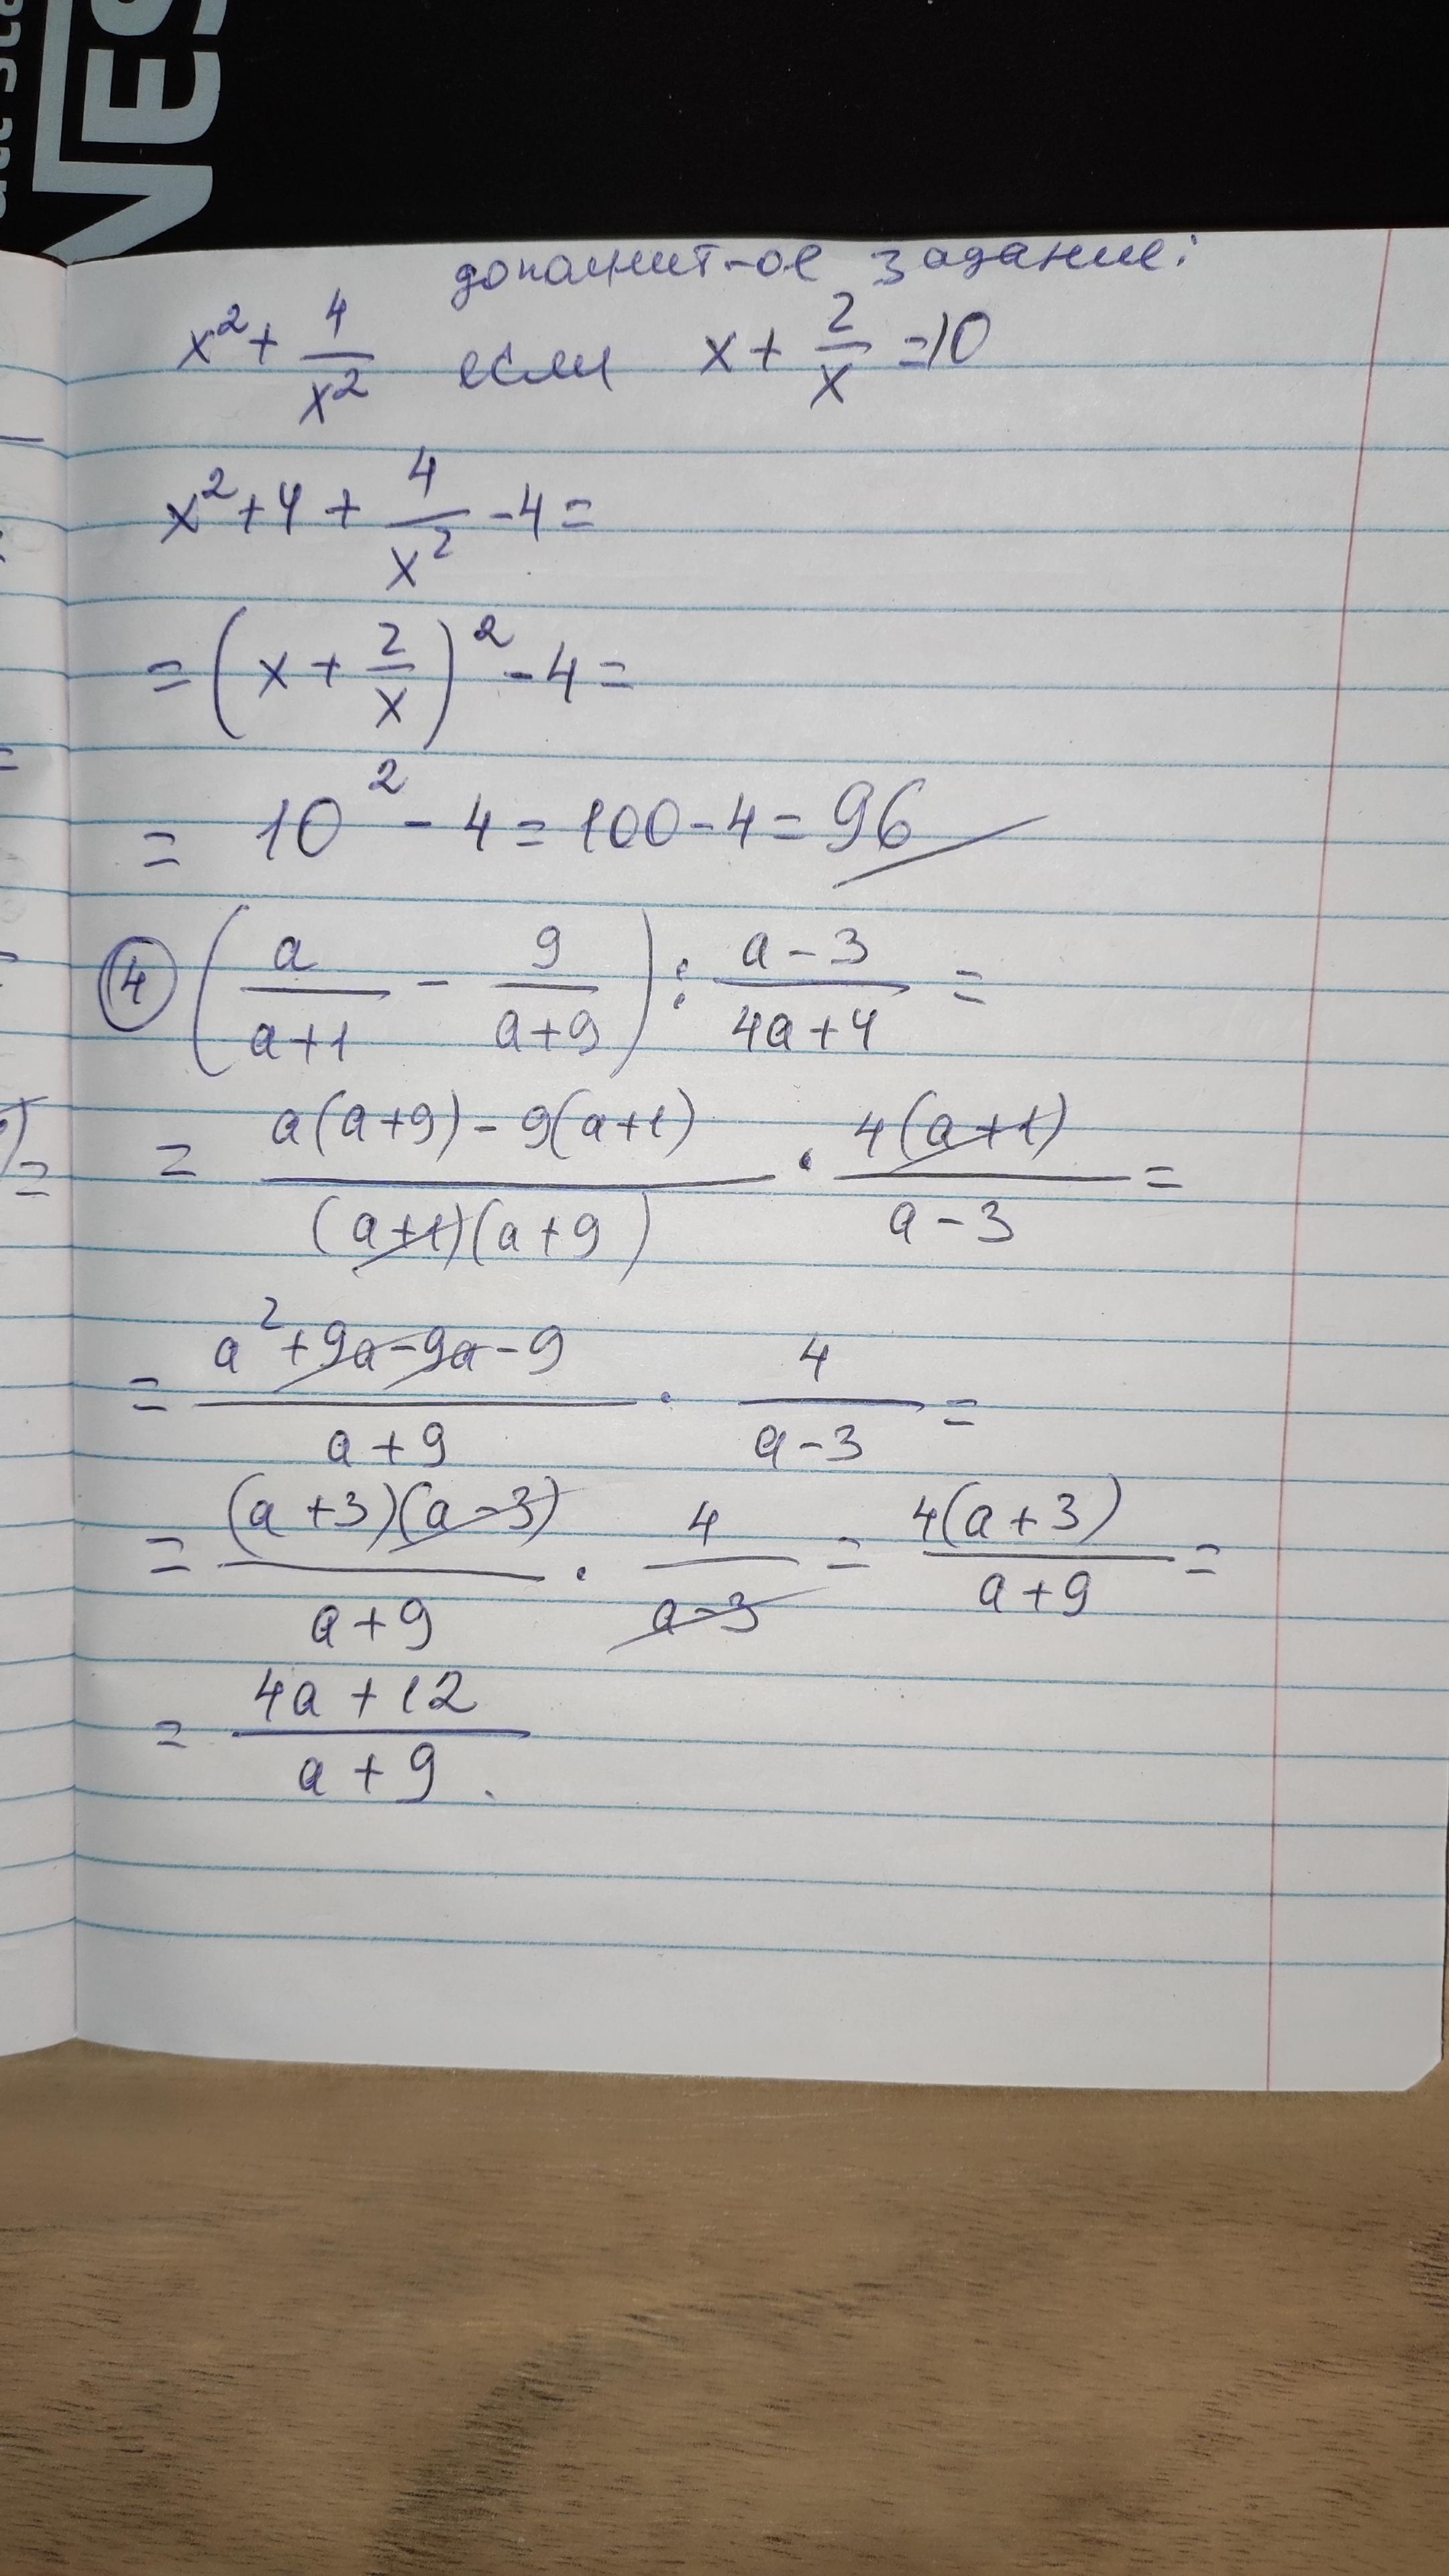 NES
дополнит-ое задание:
x² + 4/x² если x + 2/x = 10
x² + 4 + 4/x² - 4 =
= (x + 2/x)² - 4 =
= 10² - 4 = 100 - 4 = 96
④ (a/(a+1) - 9/(a+9)) : (a-3)/(4a+4) =
= (a(a+9) - 9(a+1))/((a+1)(a+9)) · (4(a+1))/(a-3) =
= (a² + 9a - 9a - 9)/(a+9) · 4/(a-3) =
= ((a+3)(a-3))/(a+9) · 4/(a-3) = (4(a+3))/(a+9) =
= (4a+12)/(a+9).